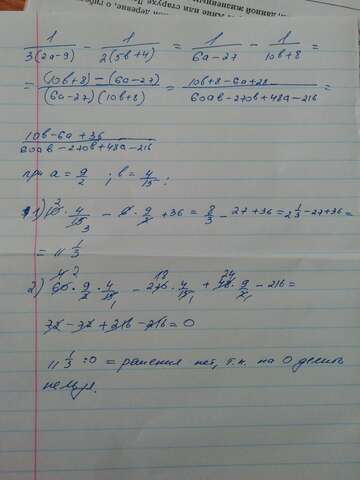 1/3(2a-9) - 1/2(5b+4) = 1/6a-27 - 1/10b+8 =
= (10b+8)-(6a-27)/(6a-27)(10b+8) = 10b+8-6a+28/60ab-270b+48a-216 =
10b-6a+36/60ab-270b+48a-216
при a = 9/2 ; b = 4/15 ;
1) 10 · 4/15 - 6 · 9/2 + 36 = 8/3 - 27 + 36 = 2 1/3 - 27 + 36 =
= 11 1/3
2) 60 · 9/2 · 4/15 - 270 · 4/15 + 48 · 9/2 - 216 =
= 0
11 1/3 : 0 = решения нет, т.к. на 0 делить
нельзя.